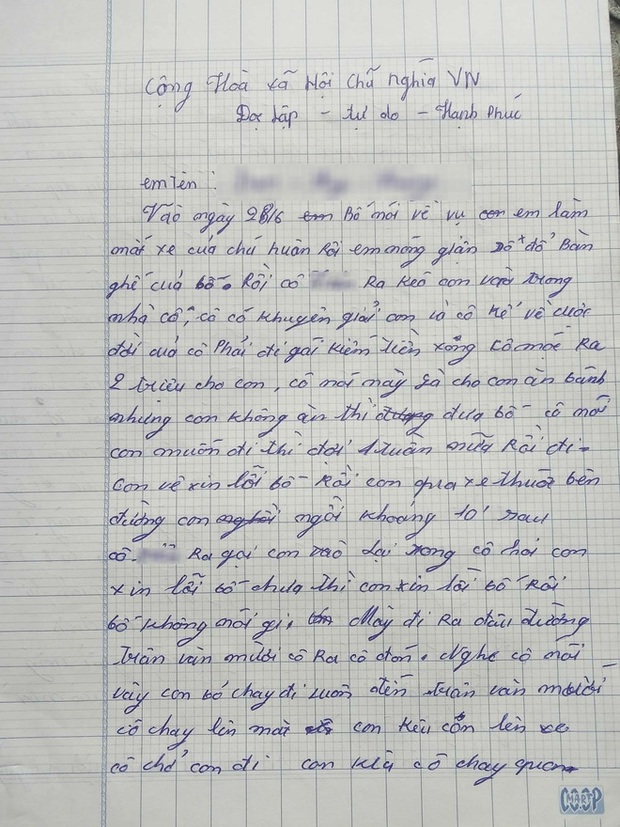 Cộng Hoà xã Hội Chủ nghĩa VN
Độc lập - tự do - Hạnh Phúc
em Tên :
Vào ngày 28/6 Bố nói về vụ em làm
mất xe của chú huân Rồi em nóng giận Dô đổ Bàn
ghế của bố. Rồi cô Ra kéo con vào trong
nhà cô, cô có khuyên giải con và cô kể về cuộc
đời của cô Phải đi gái kiếm tiền xong cô móc Ra
2 triệu cho con, cô nói này là cho con ăn bánh
nhưng con không ăn thì đưa bố cô nói
con muốn đi thì đợi 1 tuần nữa Rồi đi.
con về xin lỗi bố Rồi con qua xe thuốc bên
đường con ngồi khoảng 10' sau
cô. Ra gọi con vào lại xong cô hỏi con
xin lỗi bố chưa thì con xin lỗi bố Rồi
bố không nói gì, Mày đi Ra đầu đường
Trần văn mười cô Ra cô đón. Nghe cô nói
vậy con bỏ chạy đi luôn đến trần văn mười
cô chạy lên mà con kêu con lên xe
cô chở con đi con kêu cô chạy
CO.OP MART